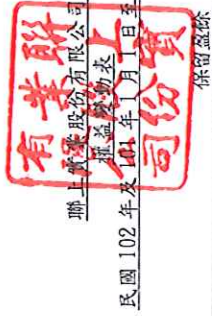 聯上實業股份有限公司
權益變動表
民國 102 年及 101 年 1 月 1 日至
保留盈餘